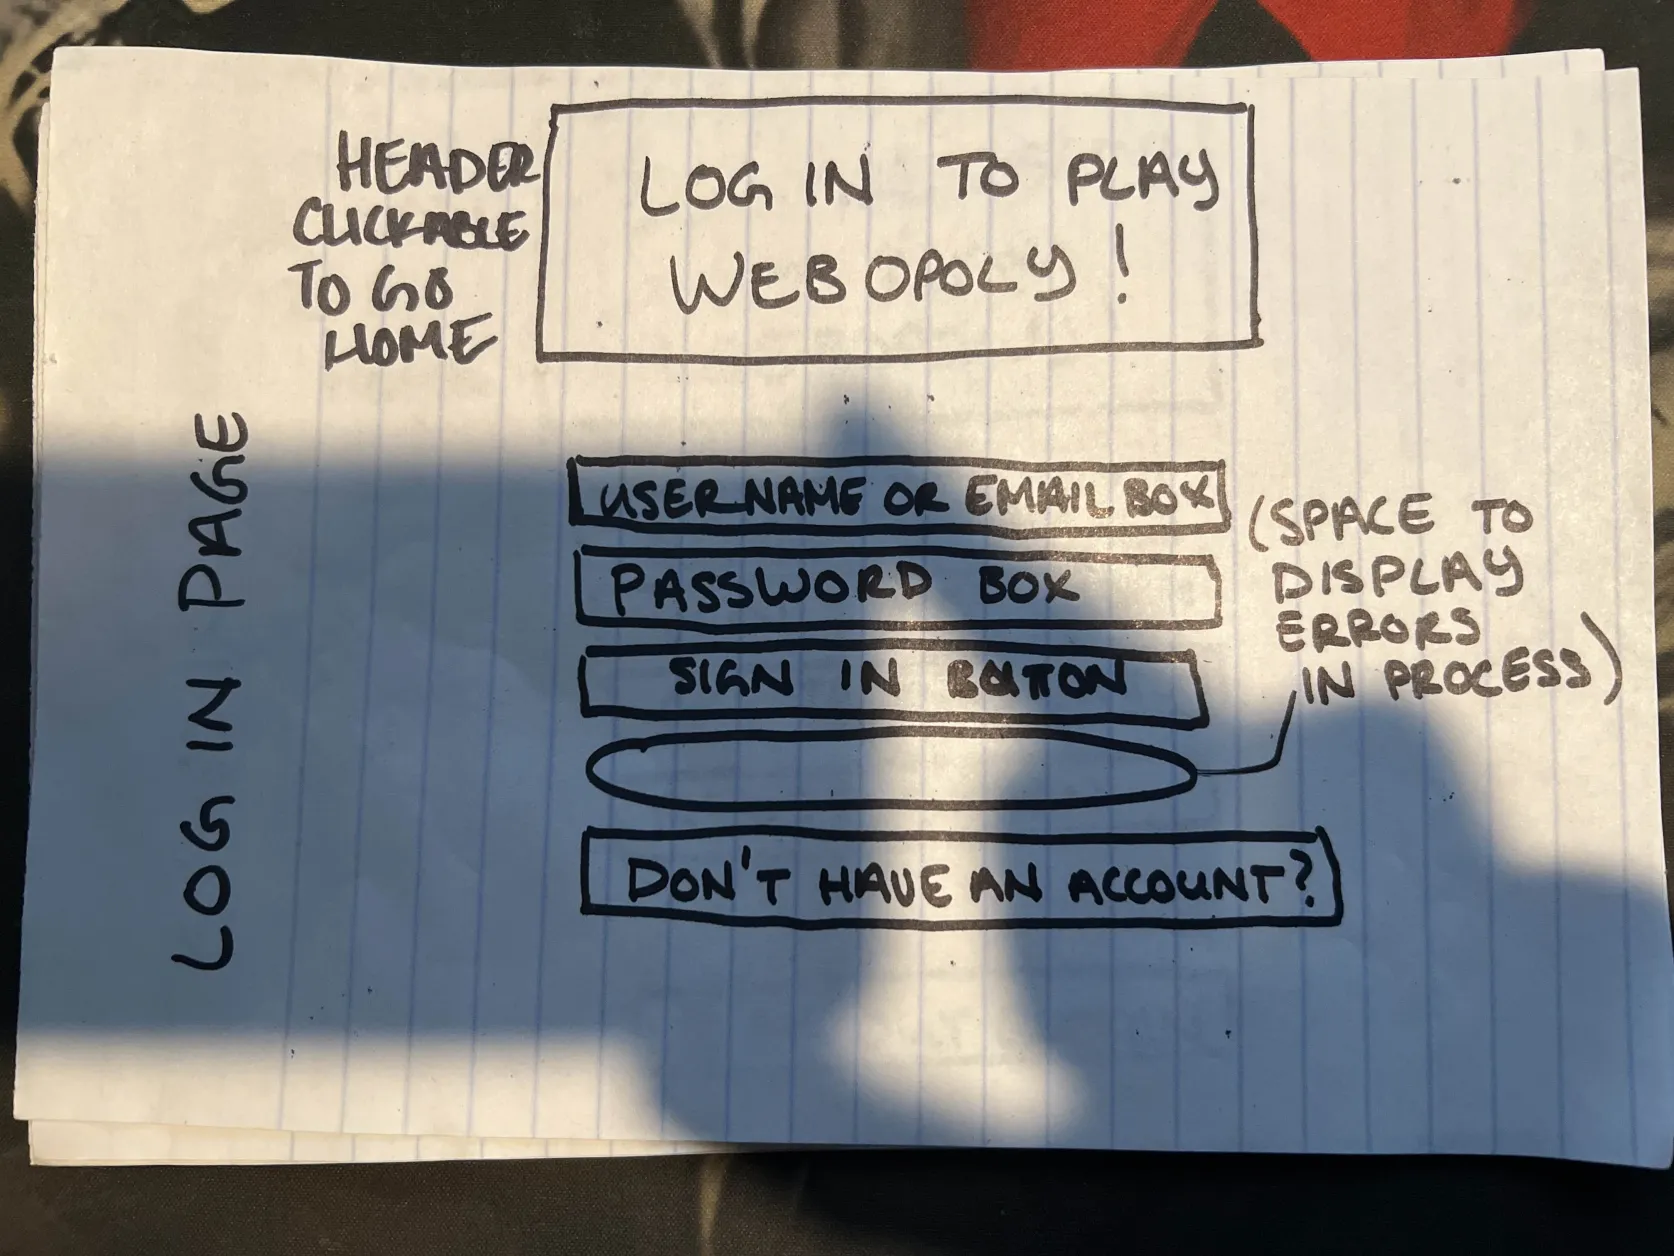 HEADER
CLICKABLE
TO GO
HOME
LOG IN TO PLAY
WEBOPOLY!
LOG IN PAGE
USERNAME OR EMAIL BOX
PASSWORD BOX
SIGN IN BUTTON
(SPACE TO
DISPLAY
ERRORS
IN PROCESS)
DON'T HAVE AN ACCOUNT?